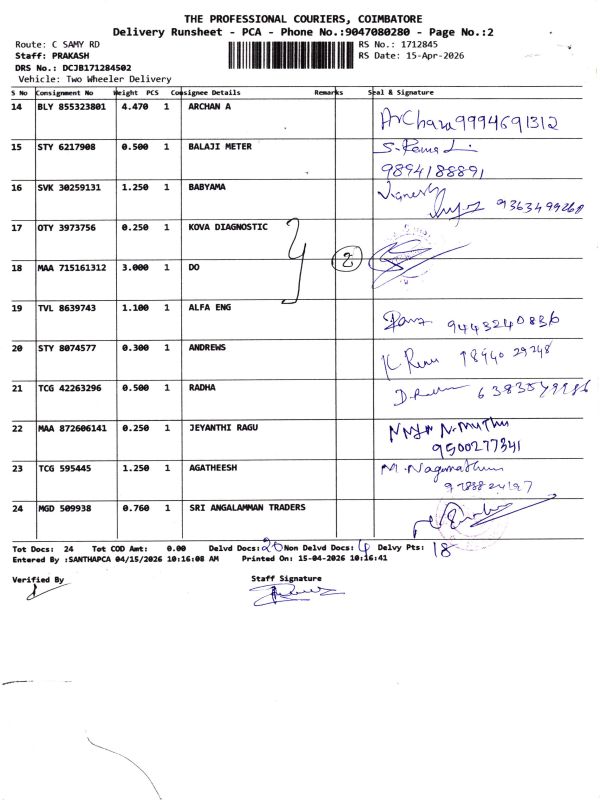 THE PROFESSIONAL COURIERS, COIMBATORE
Delivery Runsheet - PCA - Phone No.:9047080280 - Page No.:2
Route: C SAMY RD RS No.: 1712845
Staff: PRAKASH RS Date: 15-Apr-2026
DRS No.: DCJB171284502
Vehicle: Two Wheeler Delivery
S No Consignment No Weight PCS Consignee Details Remarks Seal & Signature
14 BLY 855323801 4.470 1 ARCHAN A
Archana 9994691312
15 STY 6217908 0.500 1 BALAJI METER
9894188891
16 SVK 30259131 1.250 1 BABYAMA
Vignesh
9363499260
17 OTY 3973756 0.250 1 KOVA DIAGNOSTIC
2
18 MAA 715161312 3.000 1 DO
19 TVL 8639743 1.100 1 ALFA ENG
9443240836
20 STY 8074577 0.300 1 ANDREWS
21 TCG 42263296 0.500 1 RADHA
22 MAA 872606141 0.250 1 JEYANTHI RAGU
N. Muthu
9500277341
23 TCG 595445 1.250 1 AGATHEESH
24 MGD 509938 0.760 1 SRI ANGALAMMAN TRADERS
Tot Docs: 24 Tot COD Amt: 0.00 Delvd Docs: 20 Non Delvd Docs: 4 Delvy Pts: 18
Entered By :SANTHAPCA 04/15/2026 10:16:08 AM Printed On: 15-04-2026 10:16:41
Verified By Staff Signature